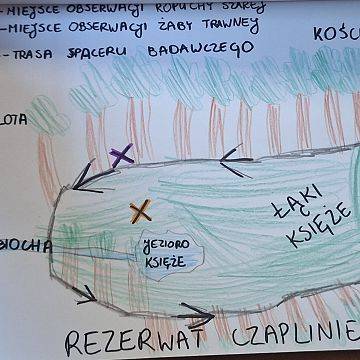 -MIEJSCE OBSERWACJI ROPUCHY SZAREJ
-MIEJSCE OBSERWACJI ŻABY TRAWNEJ
- TRASA SPACERU BADAWCZEGO
KOŚC
LOTA
ŁĄKI
KSIĘŻE
IOCHA
JEZIORO
KSIĘŻE
REZERWAT CZAPLINIE